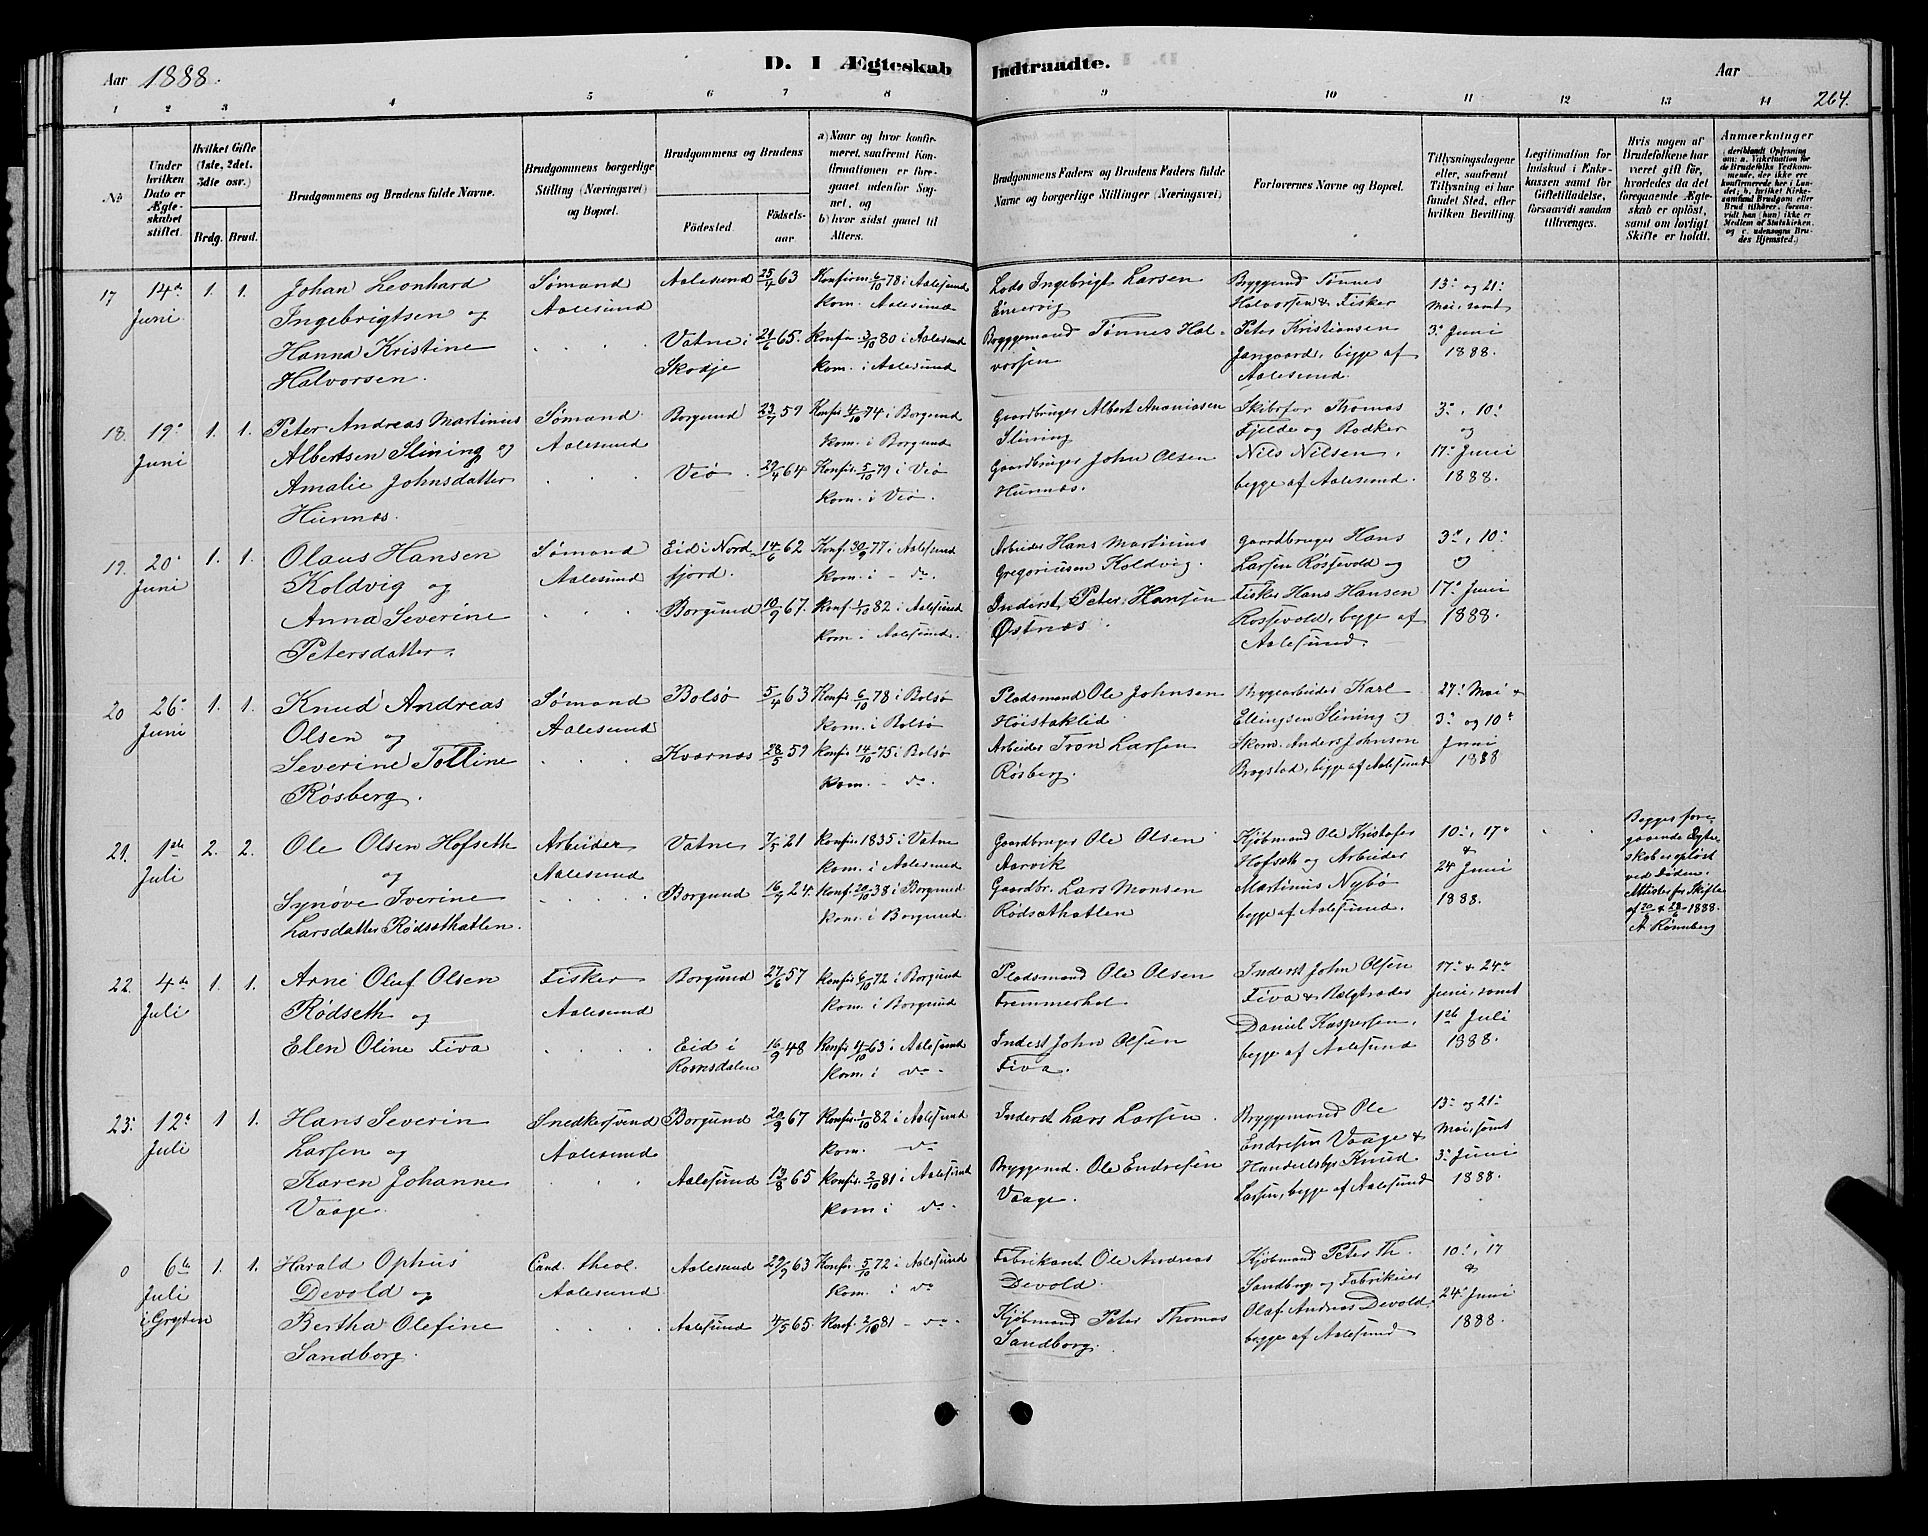 Aar 1888.
D. I Ægteskab Indtraadte.
Aar
264.
1 2 3 4 5 6 7 8 9 10 11 12 13 14
No
Under hvilken Dato er Ægteskabet stiftet.
Hvilket Gifte (1ste, 2det, 3die osv.)
Brdg. Brud.
Brudgommens og Brudens fulde Navne.
Brudgommens borgerlige Stilling (Næringsvei) og Bopæl.
Brudgommens og Brudens
Födested.
Födselsaar
a) Naar og hvor konfirmeret, saafremt Konfirmationen er foregaaet udenfor Sognet, og
b) hvor sidst gaaet til Alters.
Brudgommens Faders og Brudens Faders fulde Navne og borgerlige Stillinger (Næringsvei)
Forlovernes Navne og Bopæl.
Tillysningsdagene eller, saafremt Tillysning ei har fundet Sted, efter hvilken Bevilling.
Legitimation for Indskud i Enkekassen samt for Giftetilladelse, forsaavidt saadan tiltrænges.
Hvis nogen af Brudefolkene har været gift för, hvorledes da det foregaaende Ægteskab er oplöst, samt om lovligt Skifte er holdt.
Anmærkninger
17 14de Juni 1. 1.
Johan Leonhard
Ingebrigtsen og
Hanna Kristine
Halvorsen.
Sømand
Aalesund
Aalesund 25/4 63
Konfirm. 6/10 78 i Aalesund
kom. Aalesund
Vatne i Skodje 21/6 65.
Konfir. 3/10 80 i Aalesund
kom. i Aalesund
Lods Ingebrigt Larsen
Bryggemand Tønnes Halvorsen
Bryggemd Tønnes
Halvorsen & Fisker
Peter Kristiansen
Jangaard, begge af
Aalesund.
13de og 21de
Mai, samt
3de Juni
1888.
18. 19de Juni 1. 1.
Peter Andreas Martinius
Albertsen Slining og
Amalie Johnsdatter
Hunnes.
Sømand
Aalesund
Borgund 23/7 57
Konfir 4/10 74 i Borgund
kom. i Borgund
Veø. 29/4 64
Konfir. 5/10 79 i Veø
kom. i Veø.
Gaardbruger Albert Ananiasen
Slining
Gaardbruger John Olsen
Hunnæs.
Skibsfør Thomas
Fjelde og Bødker
Nils Nilsen,
begge af Aalesund.
3de, 10de
og
17de Juni
1888.
19. 20de Juni 1. 1.
Olaus Hansen
Koldvig og
Anna Severine
Petersdatter.
Sømand
Aalesund
Eid i Nordfjord. 14/6 62
Konf. 30/9 77 i Aalesund
kom. i - do.
Borgund 10/9 67.
Konf. 1/10 82 i Aalesund
kom. i Aalesund.
Arbeider Hans Martinius
Gregoriusen Koldvig.
Inderst Peter Hansen
Østnæs.
Gaardbruger Hans
Larsen Røssevold og
Fisker Hans Hansen
Røssevold, begge af
Aalesund.
3de, 10de
og
17de Juni
1888.
20 26de Juni 1. 1.
Knud Andreas
Olsen og
Severine Talline
Røsberg.
Sømand
Aalesund
Bolsø 5/4 63
Konfir 6/10 78 i Bolsø
kom. i Bolsø
Kvernæs 28/5 59
Konfir 14/10 75 i Bolsø
kom. - do.
Pladsmand Ole Johnsen
Høistaklid
Arbeider Tron Larsen
Røsberg.
Bryggearbeider Karl
Ellingsen Slining og
Skom. Anders Johnsen
Brogstad, begge af Aalesund
27de Mai &
3de og 10de
Juni
1888
21. 1ste Juli 2. 2.
Ole Olsen Hofseth
og
Synøve Iverine
Larsdatter Rødsæthatlen.
Arbeider
Aalesund
Vatne 7/5 21
Konfir 1835 i Vatne
kom. i Aalesund
Borgund 16/7 24.
Konf. 20/10 38 i Borgund
kom. i Borgund
Gaardbruger Ole Olsen
Aarvik
Gaardbr. Lars Monsen
Rødsæthatlen
Kjøbmand Ole Kristofer
Hofseth og Arbeider
Martinius Nybø
begge af Aalesund.
10de, 17de
&
24 Juni
1888.
Begges foregaaende Egteskab er opløst
ved Døden.
Attester for Skifte
af 20/6 & 28/6 1888.
A Rønneberg
22. 4de Juli 1. 1.
Arne Oluf Olsen
Rødseth og
Elen Oline Fiva
Fisker
Aalesund
Borgund 27/6 57
Konfir 6/10 72 i Borgund
kom. i Borgund
Eid i Romsdalen 16/9 48
Konfir 4/10 63 i Aalesund
kom. i do -
Pladsmand Ole Olsen
Fremmerhol
Inderst John Olsen
Fiva.
Inderst John Olsen
Fiva &
Daniel Kaspersen,
begge af Aalesund
17de & 24de
Juni, samt
1ste Juli
1888.
23. 12te Juli 1 1.
Hans Severin
Larsen og
Karen Johanne
Vaage.
Snedkersvend
Aalesund
Borgund 20/9 67
Konfir. 1/10 82 i Aalesund
kom. do
Aalesund 13/8 65
Konfir. 2/10 81 i Aalesund
kom i do.
Inderst Lars Larsen.
Bryggemd. Ole Endresen
Vaage.
Bryggemand Ole
Endresen Vaage &
Handelsbgt Knud
Larsen, begge af Aalesund
13de og 21de
Mai, samt
3de Juni
1888.
0 6te Juli i Grytten 1. 1.
Harald Ophus
Devold og
Bertha Olefine
Sandborg.
Cand. theol.
Aalesund
Aalesund 29/9 63
Konfir. 5/10 72 i Aalesund
kom. i do
Aalesund 4/5 65.
Konf. 2/10 81 - do -
Fabrikant Ole Andreas
Devold.
Kjøbmand Peter Thomas
Sandborg.
Kjøbmand Peter Th.
Sandborg og Fabrikeier
Olaf Andreas Devold,
begge af Aalesund
10de, 17
&
24de Juni
1888.